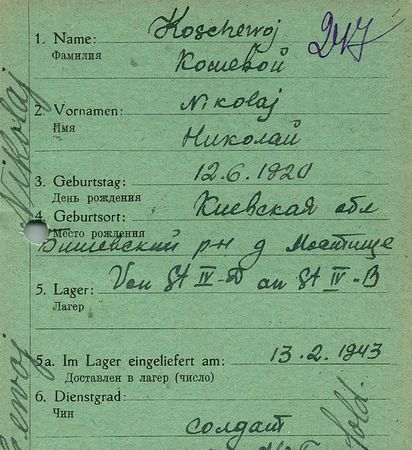 Koschewoj
1. Name:
Фамилия
Кошевой
Nikolaj
2. Vornamen:
Имя
Николай
3. Geburtstag: 12.6.1920
День рождения
4. Geburtsort: Киевская обл
Место рождения
Бишевский р-н д Мостище
5. Lager: Von St IV-D an St IV-B
Лагер
5a. Im Lager eingeliefert am: 13.2.1943
Доставлен в лагер (число)
6. Dienstgrad:
Чин
солдат
Sold.
Nikolaj